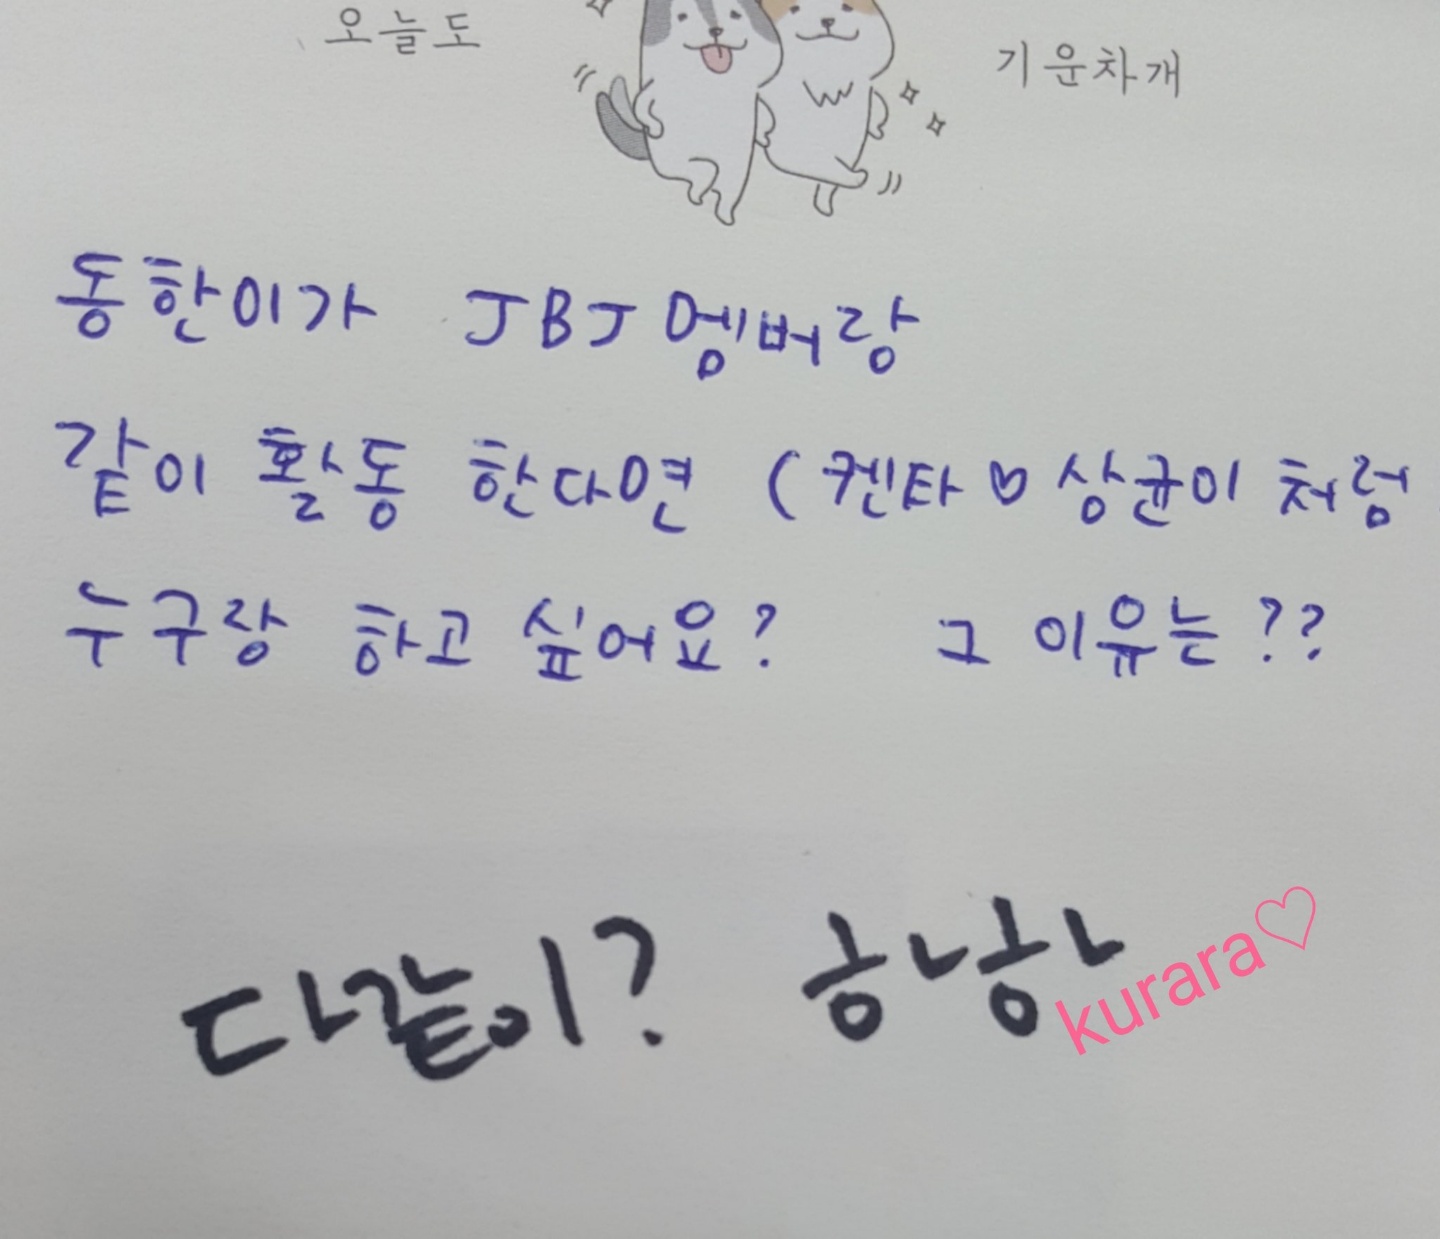 오늘도
기운차개
동한이가 JBJ멤버랑
같이 활동 한다면 (켄타♡상균이 처럼
누구랑 하고 싶어요? 그 이유는??
다같이? 하하
kurara♡